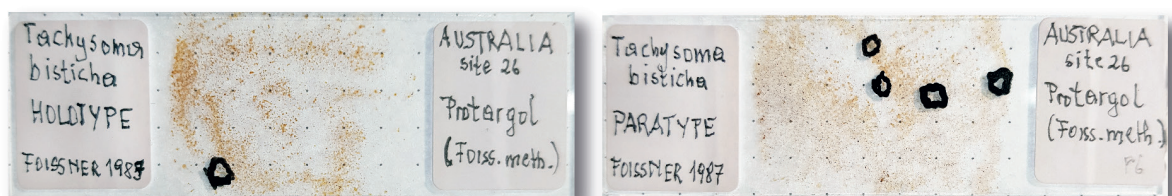 Tachysoma
bisticha
HOLOTYPE
FOISSNER 1987
AUSTRALIA
site 26
Protargol
(Foiss. meth.)
Tachysoma
bisticha
PARATYPE
FOISSNER 1987
AUSTRALIA
site 26
Protargol
(Foiss. meth.)
P6